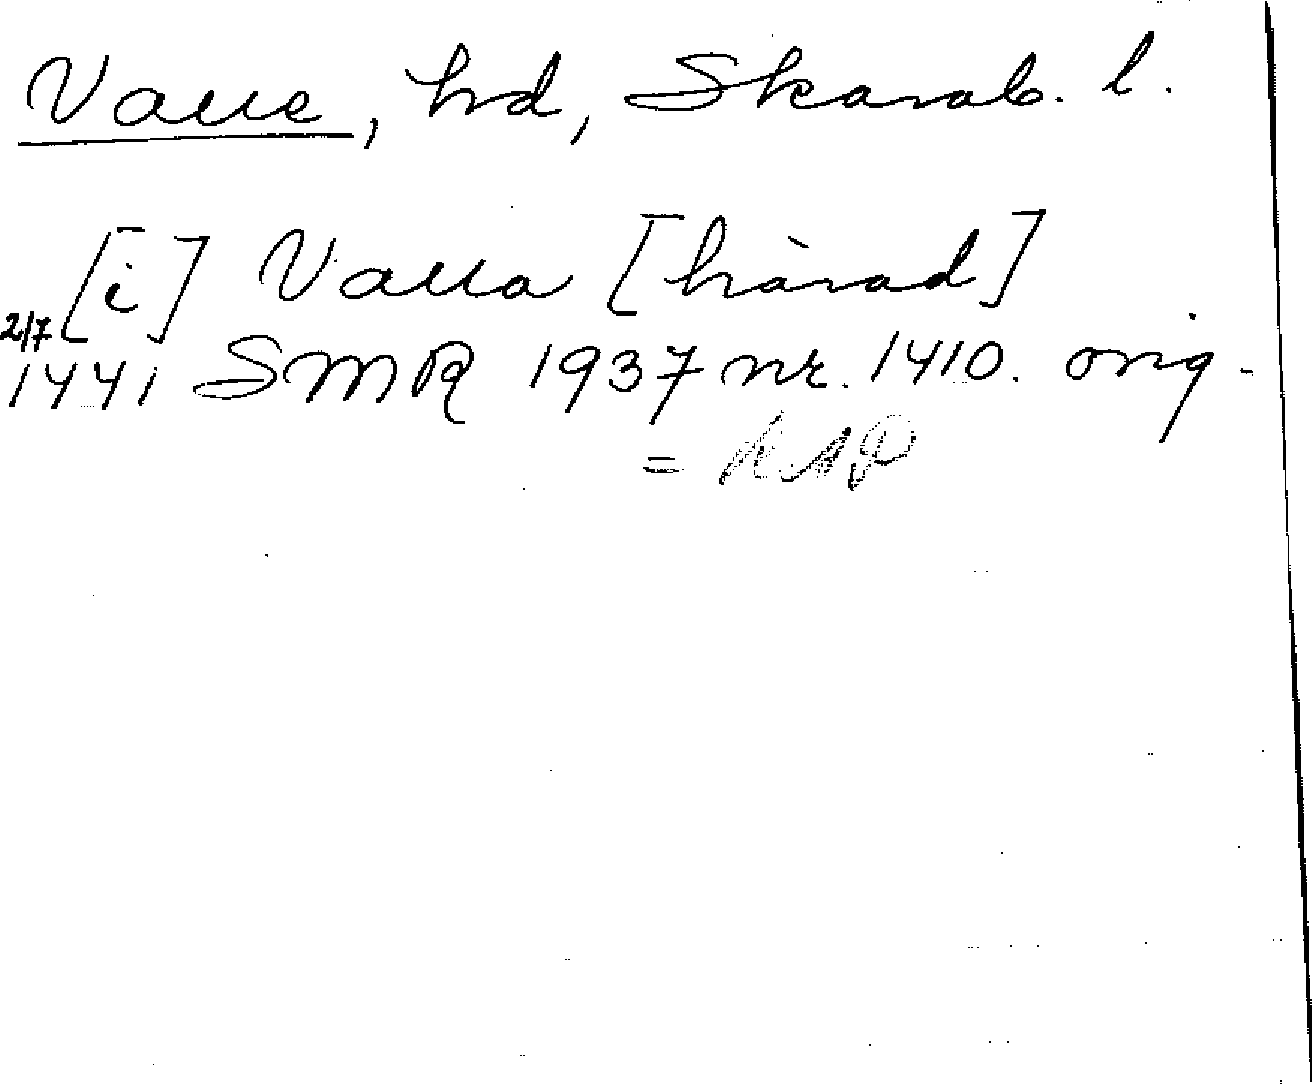 Valle, hd, Skarab. l.
[i] Valla [hàrad]
2/7
1441 SMR 1937 nr. 1410. orig.
= RAP